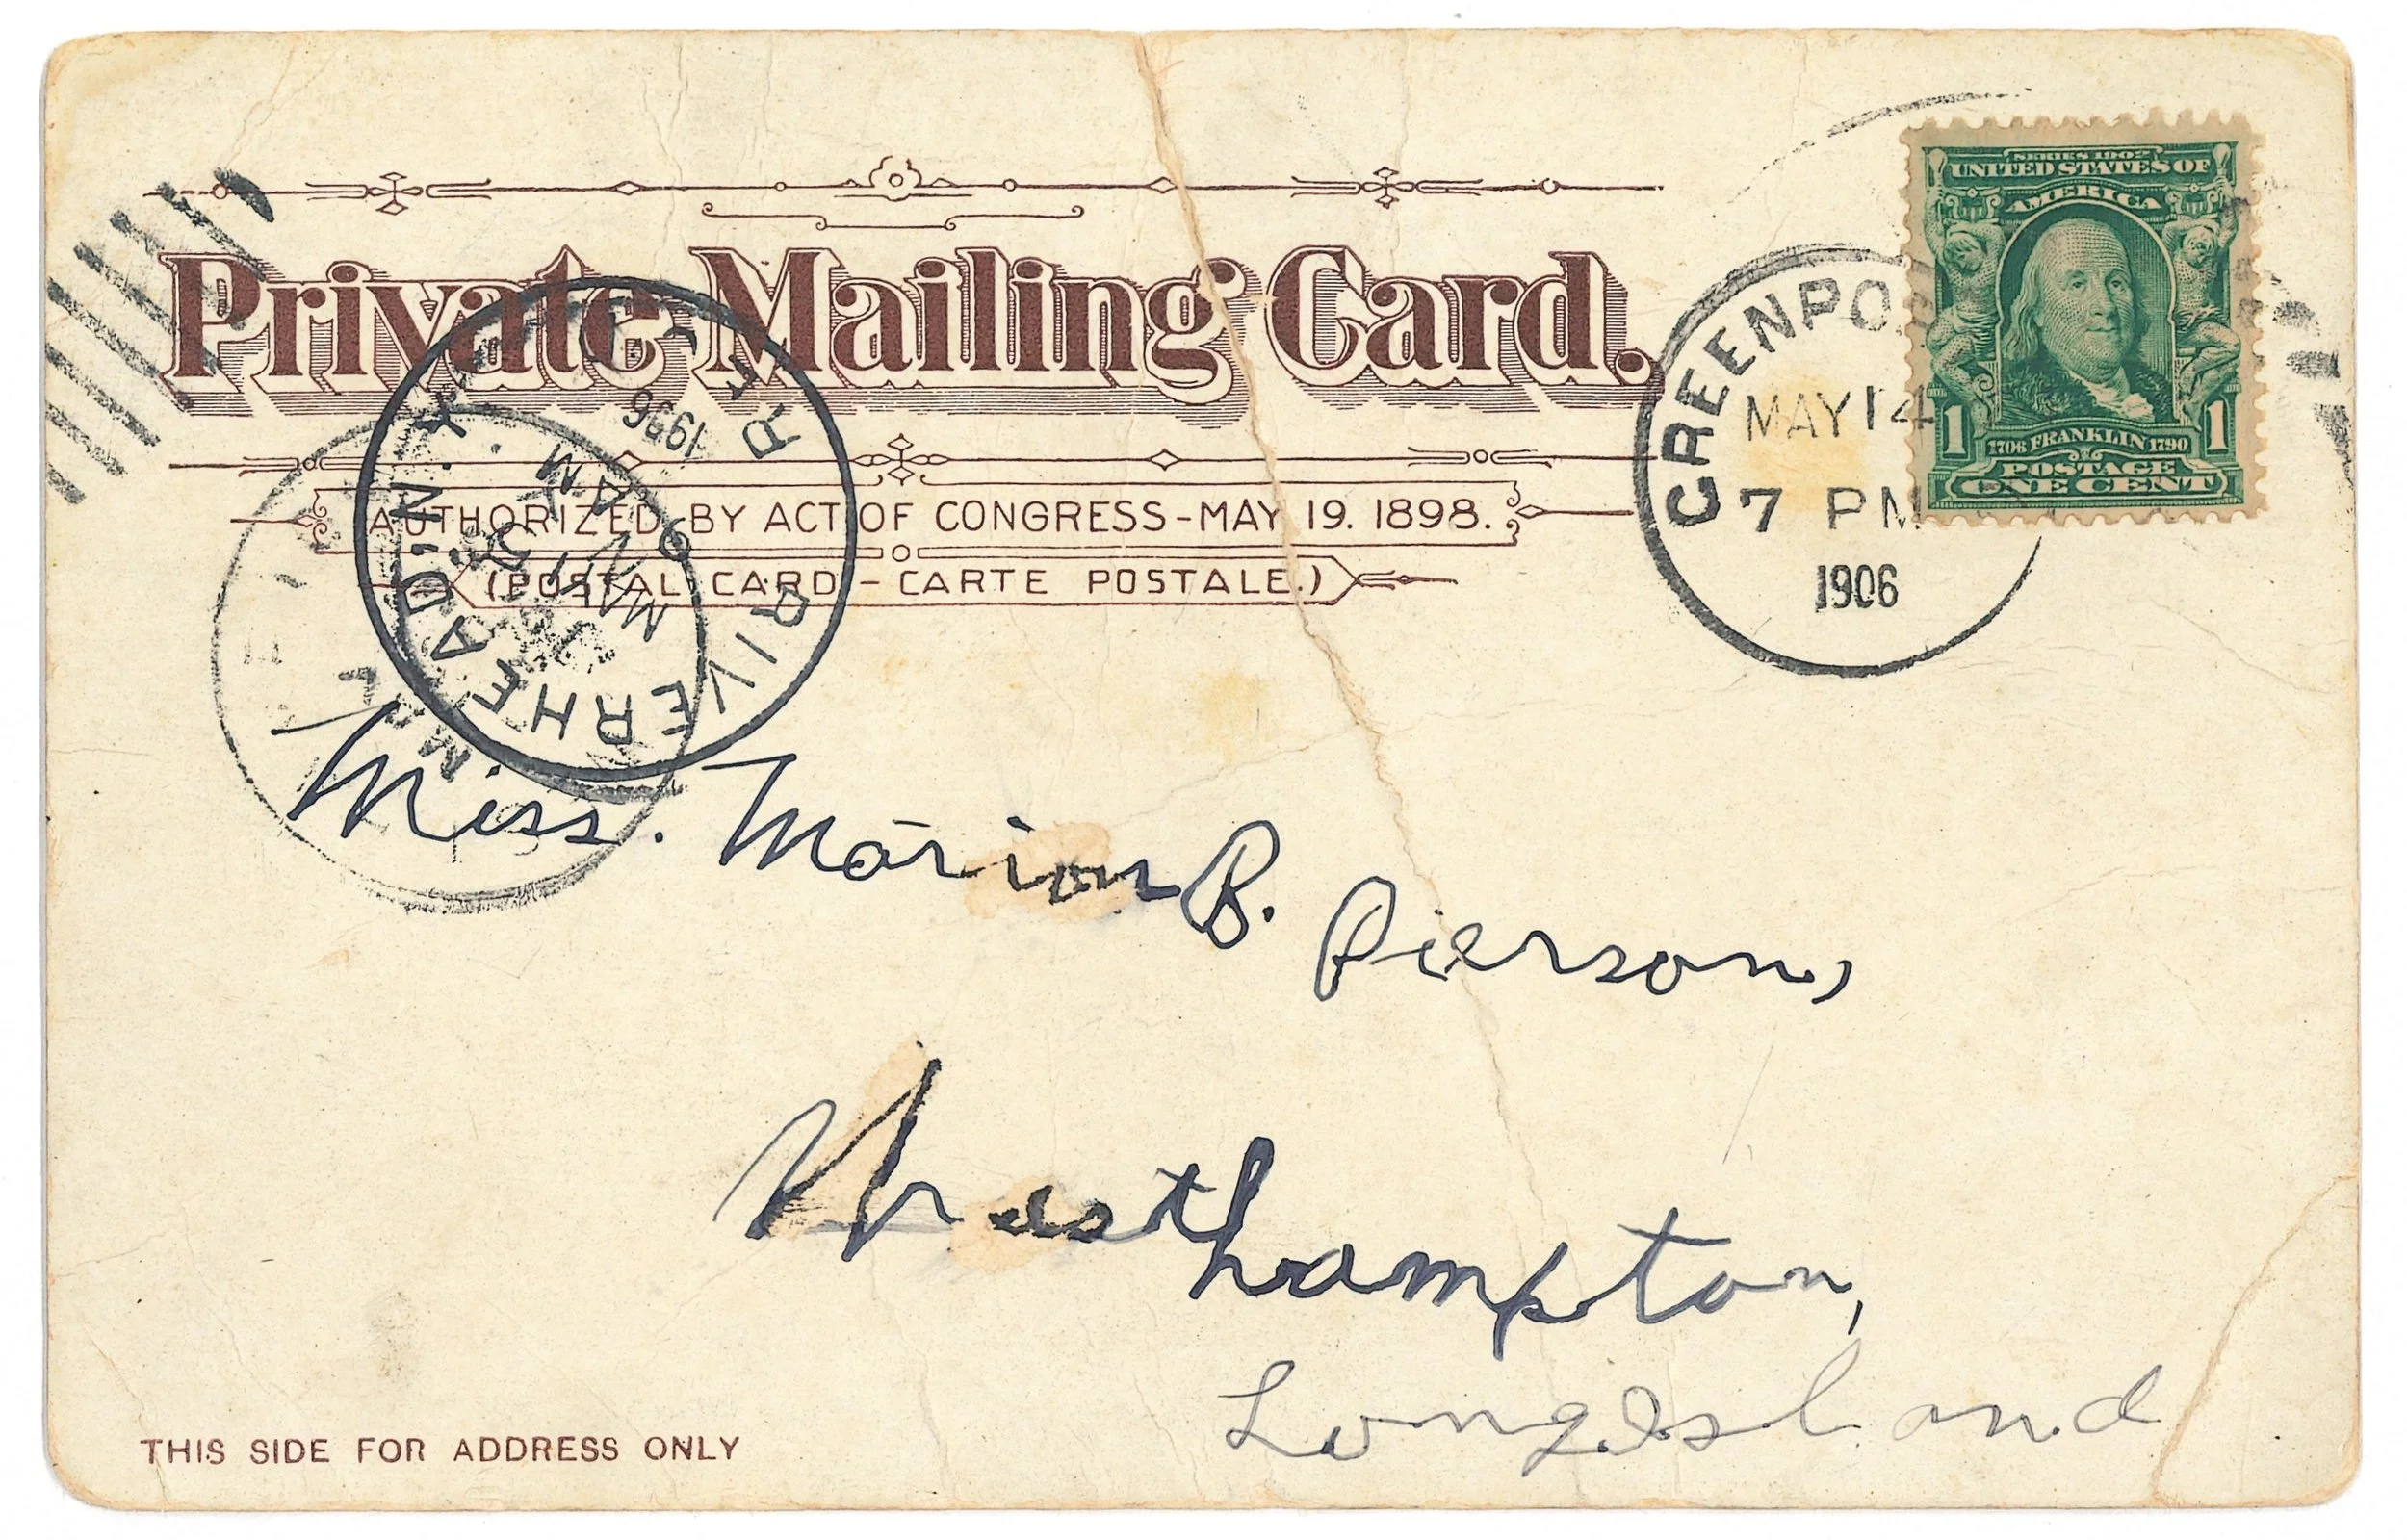 Private Mailing Card.
AUTHORIZED BY ACT OF CONGRESS-MAY 19. 1898.
(POSTAL CARD - CARTE POSTALE.)
SERIES 1902
UNITED STATES OF
AMERICA
1 1706 FRANKLIN 1790 1
POSTAGE
ONE CENT
GREENPO
MAY 14
7 PM
1906
RIVERHEAD, N.Y.
MAY
AM
Miss. Marion B. Pierson,
Westhampton,
Long Island
THIS SIDE FOR ADDRESS ONLY